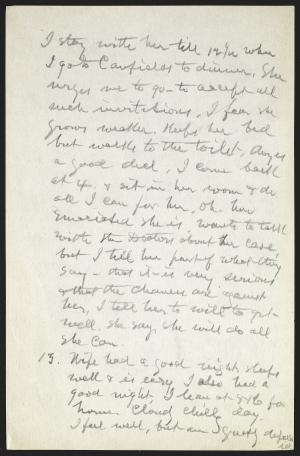 I stay with her till 12½ when
I go to Canfields to dinner. She
urges me to go to accept all
such invitations, I fear she
grows weaker. Keeps her bed
but walks to the toilet. dozes
a good deal, I come back
at 4. & sit in her room & do
all I can for her, Oh. how
Emaciated she is, wants to talk
with the doctors about her case
but I tell her part of what they
say - that it is very serious
& that the chances are against
her, I tell her to will to get
well. she say, she will do all
she can.
13. Wife had a good night sleeps
well & is easy, I also had a
good night. I leave at 8 for
home. Cloud chilly day.
I feel well, but am greatly depres
sed